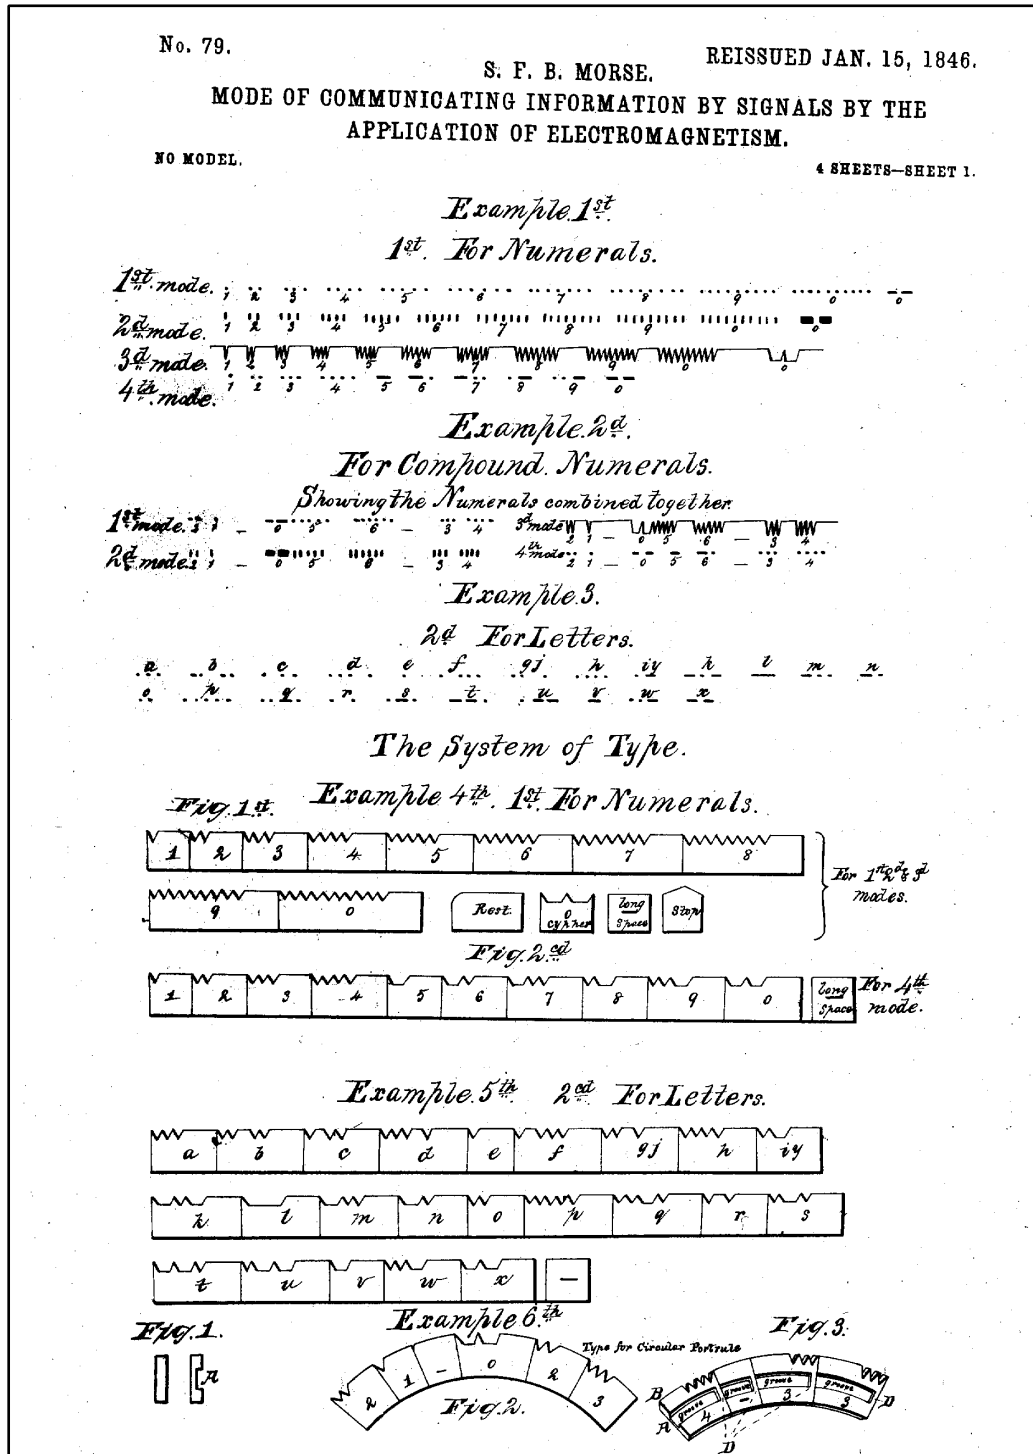 No. 79.
REISSUED JAN. 15, 1846.
S. F. B. MORSE.
MODE OF COMMUNICATING INFORMATION BY SIGNALS BY THE
APPLICATION OF ELECTROMAGNETISM.
NO MODEL.
4 SHEETS—SHEET 1.
Example. 1st.
1st. For Numerals.
1st. mode. 1 2 3 4 5 6 7 8 9 0 0
2d mode. 1 2 3 4 5 6 7 8 9 0 0
3d mode. 1 2 3 4 5 6 7 8 9 0 0
4th mode. 1 2 3 4 5 6 7 8 9 0
Example. 2d.
For Compound. Numerals.
Showing the Numerals combined together.
1st mode. 2 1 – 0 5 6 – 3 4 3d mode 2 1 – 0 5 6 – 3 4
2d mode. 2 1 – 0 5 6 – 3 4 4th mode 2 1 – 0 5 6 – 3 4
Example. 3.
2d For Letters.
a b c d e f gj h iy k l m n
o p q r s t u v w x
The System of Type.
Fig. 1st. Example 4th. 1st. For Numerals.
1 2 3 4 5 6 7 8
For 1st 2d & 3d
modes.
9 0 Rest. 0 cypher long space Stop
Fig. 2cd
1 2 3 4 5 6 7 8 9 0 long space
For 4th
mode.
Example. 5th 2cd For Letters.
a b c d e f gj h iy
k l m n o p q r s
t u v w x –
Fig. 1.
Example 6th
Fig. 3.
Type for Circular Portrule
A
2 1 – 0 2 3
Fig. 2.
B A groove 4 groove – groove 3 groove 3 D
D